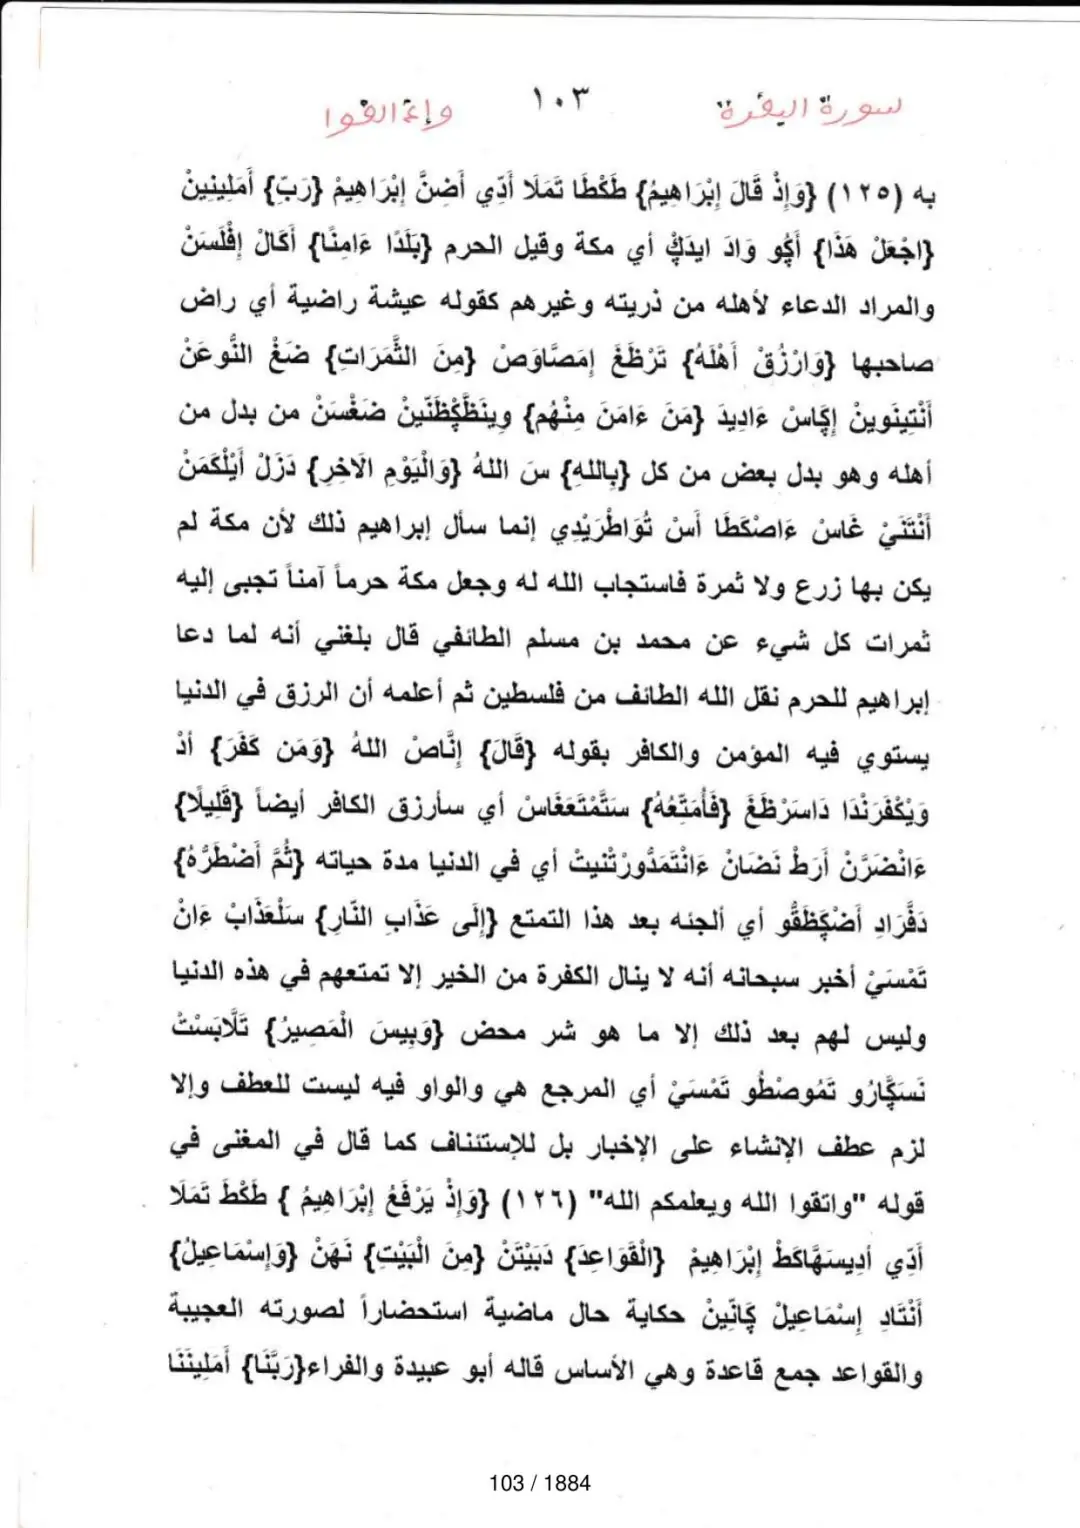 سورة البقرة ١٠٣ وإذ الفوا
به (١٢٥) {وَإِذْ قَالَ إِبْرَاهِيمُ} طَكْطَا تَمَلَا أَدِّي أَضِنَّ إِبْرَاهِيمْ {رَبِّ} أَمَلِينِينْ
{اجْعَلْ هَذَا} أَكُو وَادَ ايدَكْ أي مكة وقيل الحرم {بَلَدًا ءَامِنًا} أَكَالْ إِفْلَسَنْ
والمراد الدعاء لأهله من ذريته وغيرهم كقوله عيشة راضية أي راض
صاحبها {وَارْزُقْ أَهْلَهُ} تَرْظَغَ إِمَصَّاوَصْ {مِنَ الثَّمَرَاتِ} ضَغْ النُّوعَنْ
أَنْتِينَوِينْ إِكَّاسْ ءَادِيدَ {مَنَ ءَامَنَ مِنْهُم} وِينَظَّكِظَنِّينْ ضَغْسَنْ من بدل من
أهله وهو بدل بعض من كل {بِاللهِ} سَ اللهُ {وَالْيَوْمِ الَاخِرِ} دَزَلْ أَيْلْكَمَنْ
أَنْتَنَيْ غَاسْ ءَاصْكَطَا أَسْ تُوَاطْرَيْدِي إنما سأل إبراهيم ذلك لأن مكة لم
يكن بها زرع ولا ثمرة فاستجاب الله له وجعل مكة حرماً آمناً تجبى إليه
ثمرات كل شيء عن محمد بن مسلم الطائفي قال بلغني أنه لما دعا
إبراهيم للحرم نقل الله الطائف من فلسطين ثم أعلمه أن الرزق في الدنيا
يستوي فيه المؤمن والكافر بقوله {قَالَ} إِنَّاصْ اللهُ {وَمَن كَفَرَ} أَدْ
وَيْكْفَرَنْدَا دَاسَرْظَغَ {فَأُمَتِّعُهُ} سَتَمْتَعَغَاسْ أي سأرزق الكافر أيضاً {قَلِيلًا}
ءَانْضَرَّنْ أَرَطْ نَضَانْ ءَانْتَمَدُّورْتْنِيتْ أي في الدنيا مدة حياته {ثُمَّ أَضْطَرُّهُ}
دَفَّرَادِ أَضْكِظَقُّو أي ألجئه بعد هذا التمتع {إِلَى عَذَابِ النَّارِ} سَلْعَذَابْ ءَانْ
تَمْسَيْ أخبر سبحانه أنه لا ينال الكفرة من الخير إلا تمتعهم في هذه الدنيا
وليس لهم بعد ذلك إلا ما هو شر محض {وَبِيسَ الْمَصِيرُ} تَلَّابَسْتْ
نَسَكَّارُو تَمُوصْطُو تَمْسَيْ أي المرجع هي والواو فيه ليست للعطف وإلا
لزم عطف الإنشاء على الإخبار بل للإستئناف كما قال في المغنى في
قوله "واتقوا الله ويعلمكم الله" (١٢٦) {وَإِذْ يَرْفَعُ إِبْرَاهِيمُ } طَكْطَ تَمَلَا
أَدِّي أَدِيسَهَّاكَطْ إِبْرَاهِيمْ {الْقَوَاعِدَ} دَبَيْتَنْ {مِنَ الْبَيْتِ} نَهَنْ {وَإِسْمَاعِيلُ}
أَنْتَادِ إِسْمَاعِيلْ كَانِّينْ حكاية حال ماضية استحضاراً لصورته العجيبة
والقواعد جمع قاعدة وهي الأساس قاله أبو عبيدة والفراء{رَبَّنَا} أَمَلِينَنَا
103 / 1884